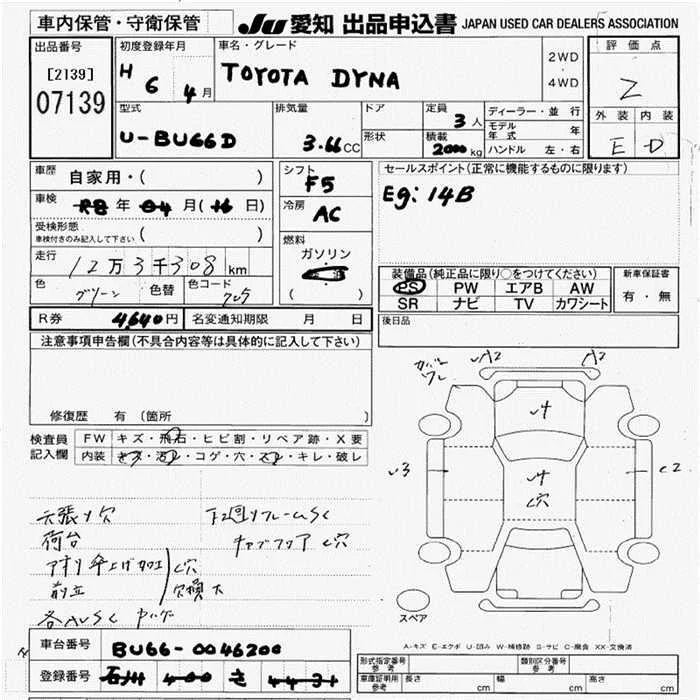 車内保管・守衛保管
JU 愛知 出品申込書 JAPAN USED CAR DEALERS ASSOCIATION
出品番号
[2139]
07139
初度登録年月
H 6 4月
車名・グレード
TOYOTA DYNA
2WD
・
4WD
評価点
2
外装 内装
E D
型式
U-BU66D
排気量
3.66CC
ドア
形状
定員
3人
積載
2000kg
ディーラー・並行
モデル年式 年
ハンドル 左・右
車歴 自家用・( )
車検 R8年04月(16日)
受検形態
車検付きのみ記入して下さい ( )
走行 12万3千308km
色 グリーン 色替 色コード 705
シフト
F5
冷房
AC
燃料
ガソリン
( )
セールスポイント(正常に機能するものに限ります)
Eg: 14B
装備品(純正品に限り○をつけてください)
PS PW エアB AW
SR ナビ TV カワシート
新車保証書
有・無
後日品
R券 4,640円 名変通知期限 月 日
注意事項申告欄(不具合内容等は具体的に記入して下さい)
修復歴 有(箇所 )
検査員記入欄
FW キズ・飛石・ヒビ割・リペア跡・X要
内装 キズ・汚レ・コゲ・穴・スレ・キレ・破レ
下廻リフレームSC
荷台
キャブフロア C穴
C穴
欠損大
各AUSC
A2 A2
U4
U3
U4
C穴
C2
スペア
A-キズ E-エクボ U-凹み W-補修跡 S-サビ C-腐食 XX-交換済
車台番号 BU66-0046200
登録番号 石川 400 き 4431
形式指定番号 参考
類別区分番号 参考
車庫証明用 参考 長さ cm 幅 cm 高さ cm